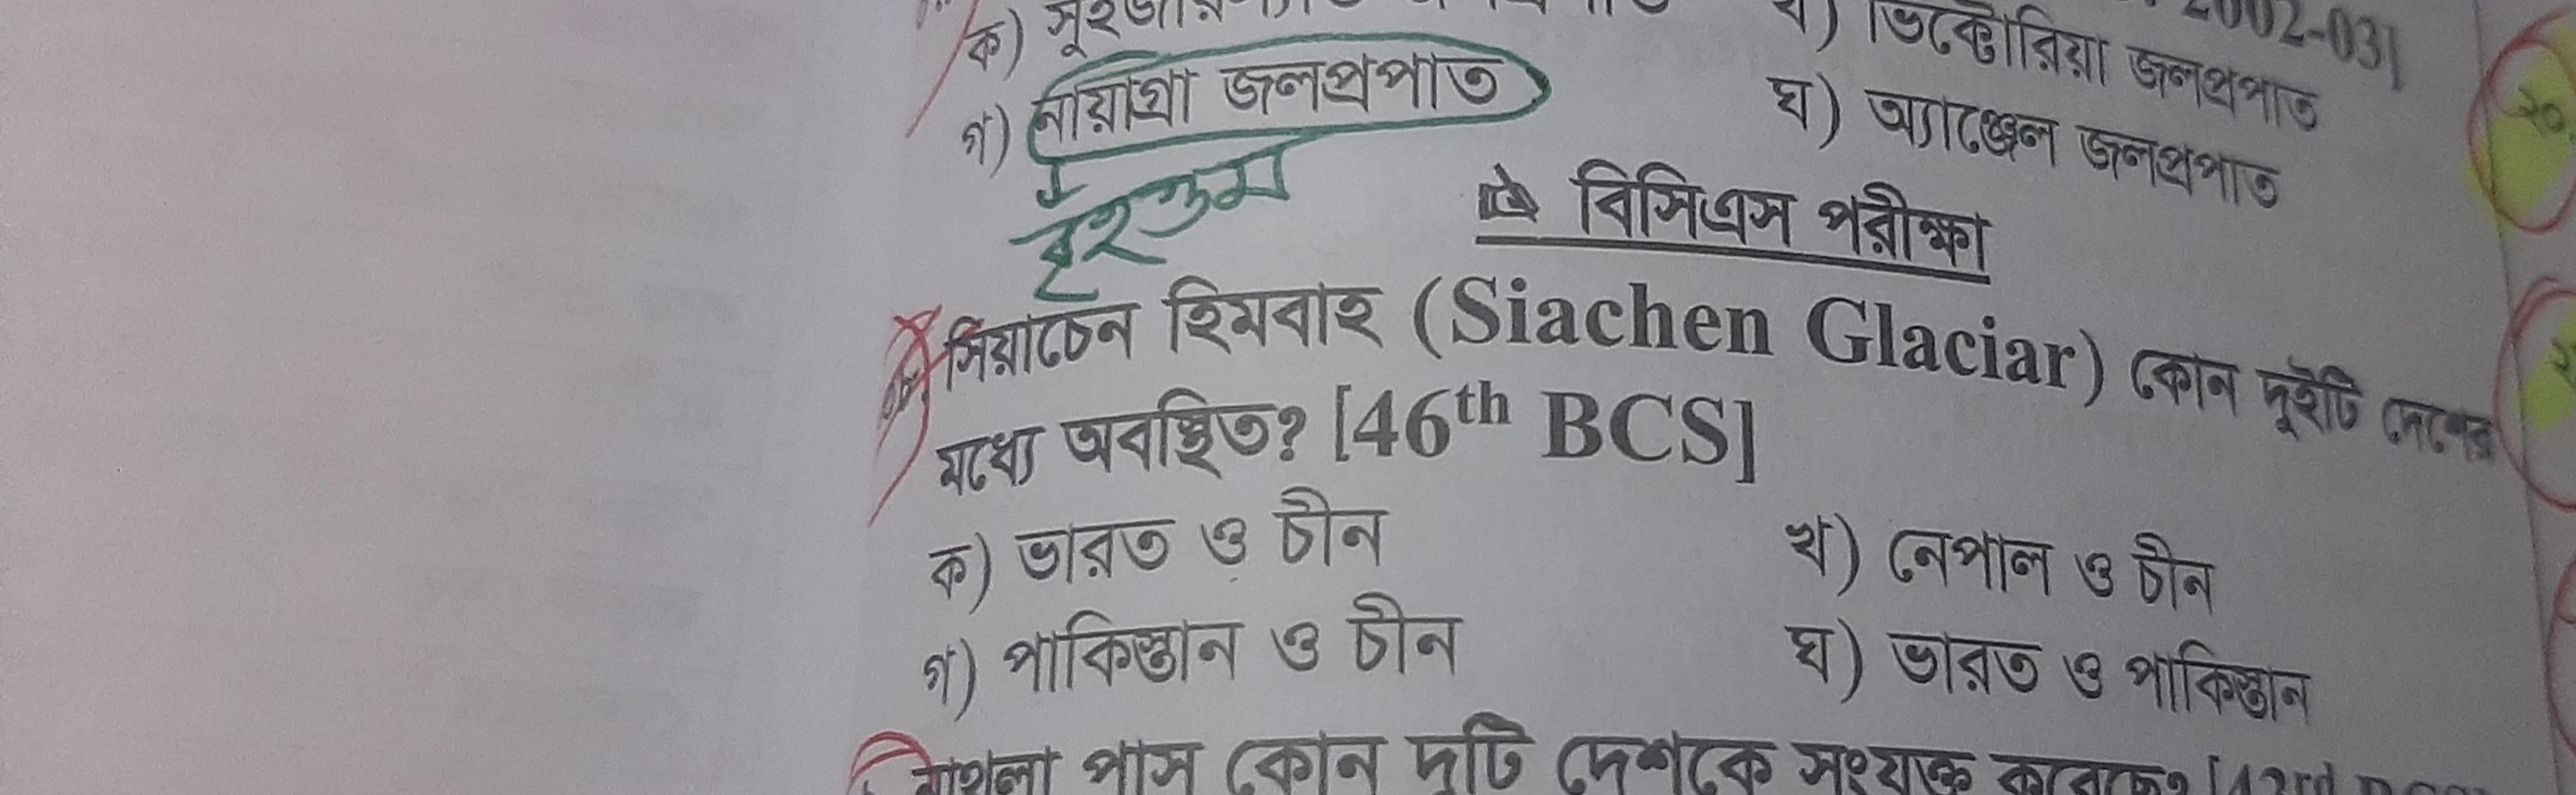 ২০০২-০৩]
ক)
খ) ভিক্টোরিয়া জলপ্রপাত
গ) নায়াগ্রা জলপ্রপাত
ঘ) অ্যাঞ্জেল জলপ্রপাত
বৃহত্তম
বিসিএস পরীক্ষা
সিয়াচেন হিমবাহ (Siachen Glaciar) কোন দুইটি দেশের
মধ্যে অবস্থিত? [46th BCS]
ক) ভারত ও চীন
খ) নেপাল ও চীন
গ) পাকিস্তান ও চীন
ঘ) ভারত ও পাকিস্তান
নাথুলা পাস কোন দুটি দেশকে সংযুক্ত করেছে? [43rd